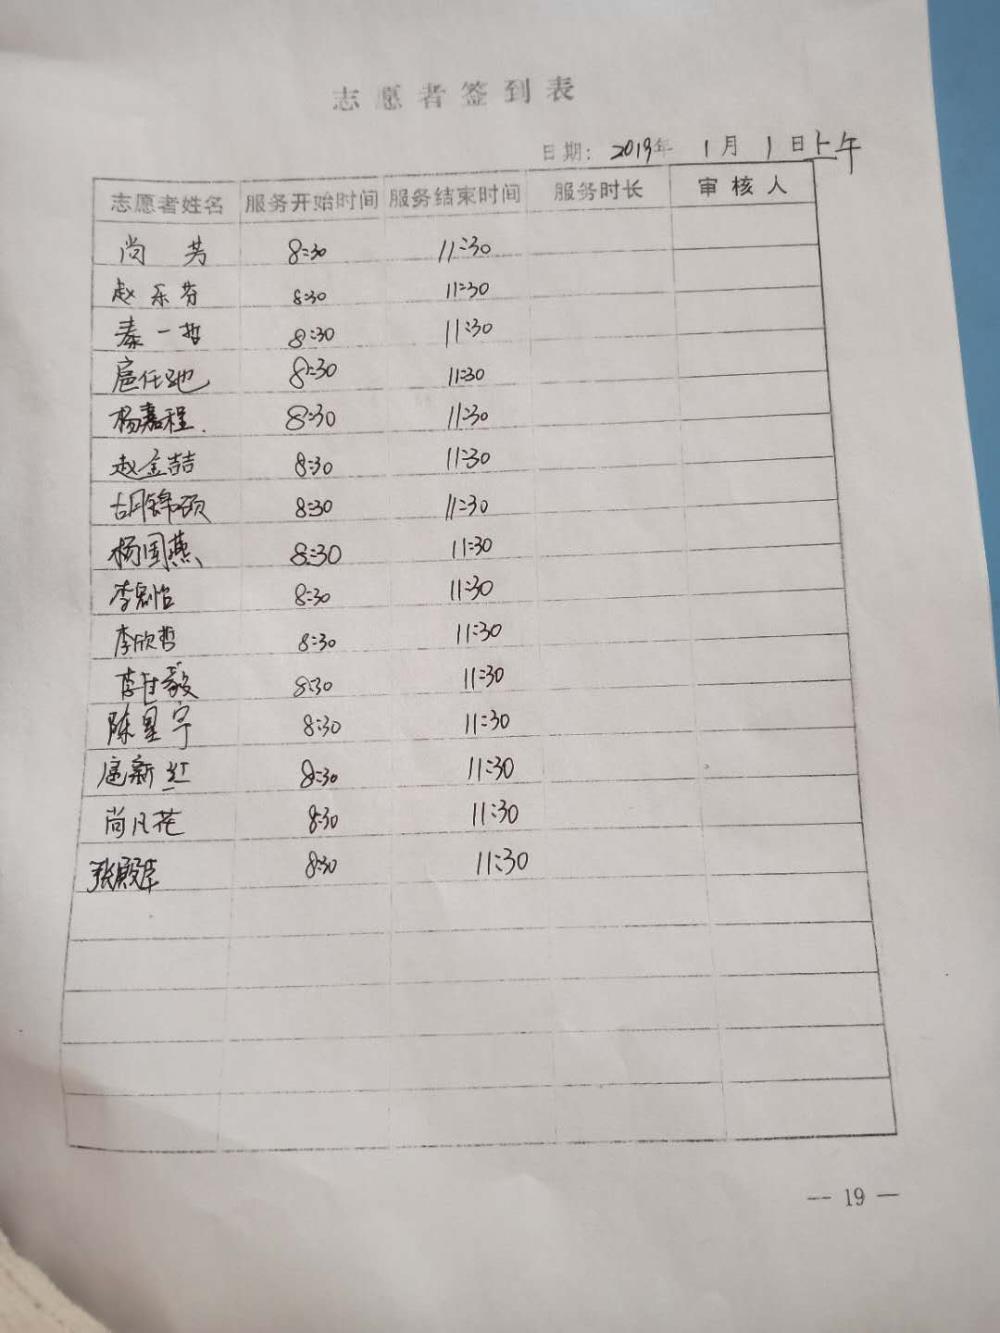 志愿者签到表
日期: 2019年 1月 1日上午
志愿者姓名 服务开始时间 服务结束时间 服务时长 审核人
尚 芳 8:30 11:30
赵乐芬 8:30 11:30
秦一哲 8:30 11:30
扈任驰 8:30 11:30
杨嘉程. 8:30 11:30
赵金喆 8:30 11:30
胡锦硕 8:30 11:30
杨国燕 8:30 11:30
李 怡 8:30 11:30
李欣哲 8:30 11:30
李甘毅 8:30 11:30
陈星宇 8:30 11:30
扈新红 8:30 11:30
尚凡花 8:30 11:30
张殿 8:30 11:30
— 19 —